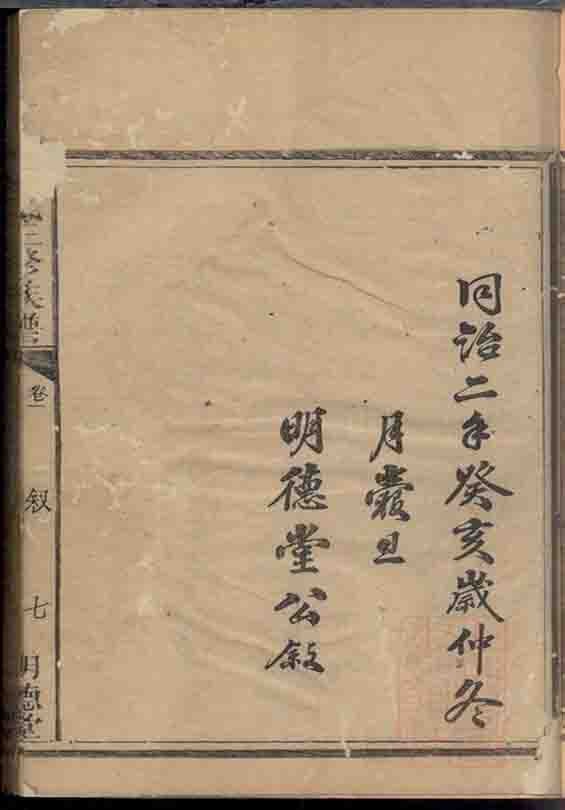 同治二年癸亥歲仲冬
月穀旦
明德堂公敘
修族譜
卷一
叙
七
明德堂